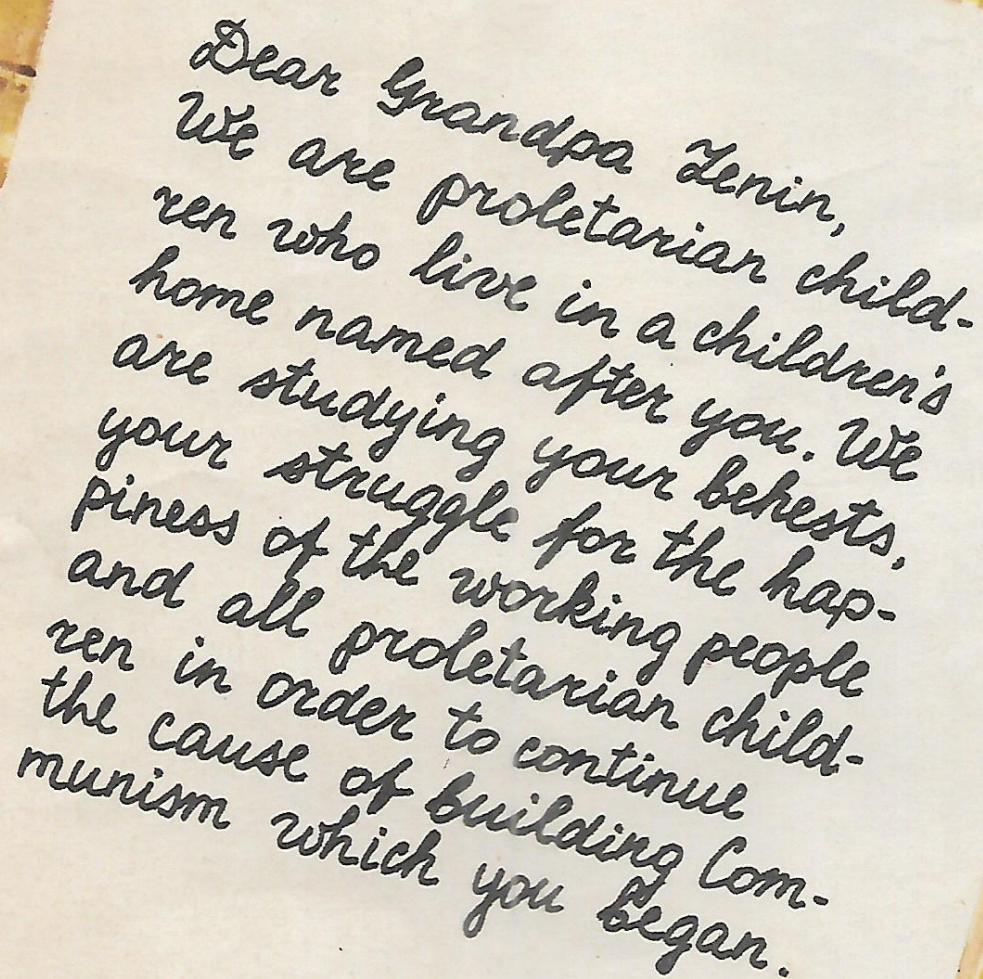 Dear Grandpa Lenin,
We are proletarian child-
ren who live in a children's
home named after you. We
are studying your behests,
your struggle for the hap-
piness of the working people
and all proletarian child-
ren in order to continue
the cause of building Com-
munism which you began.